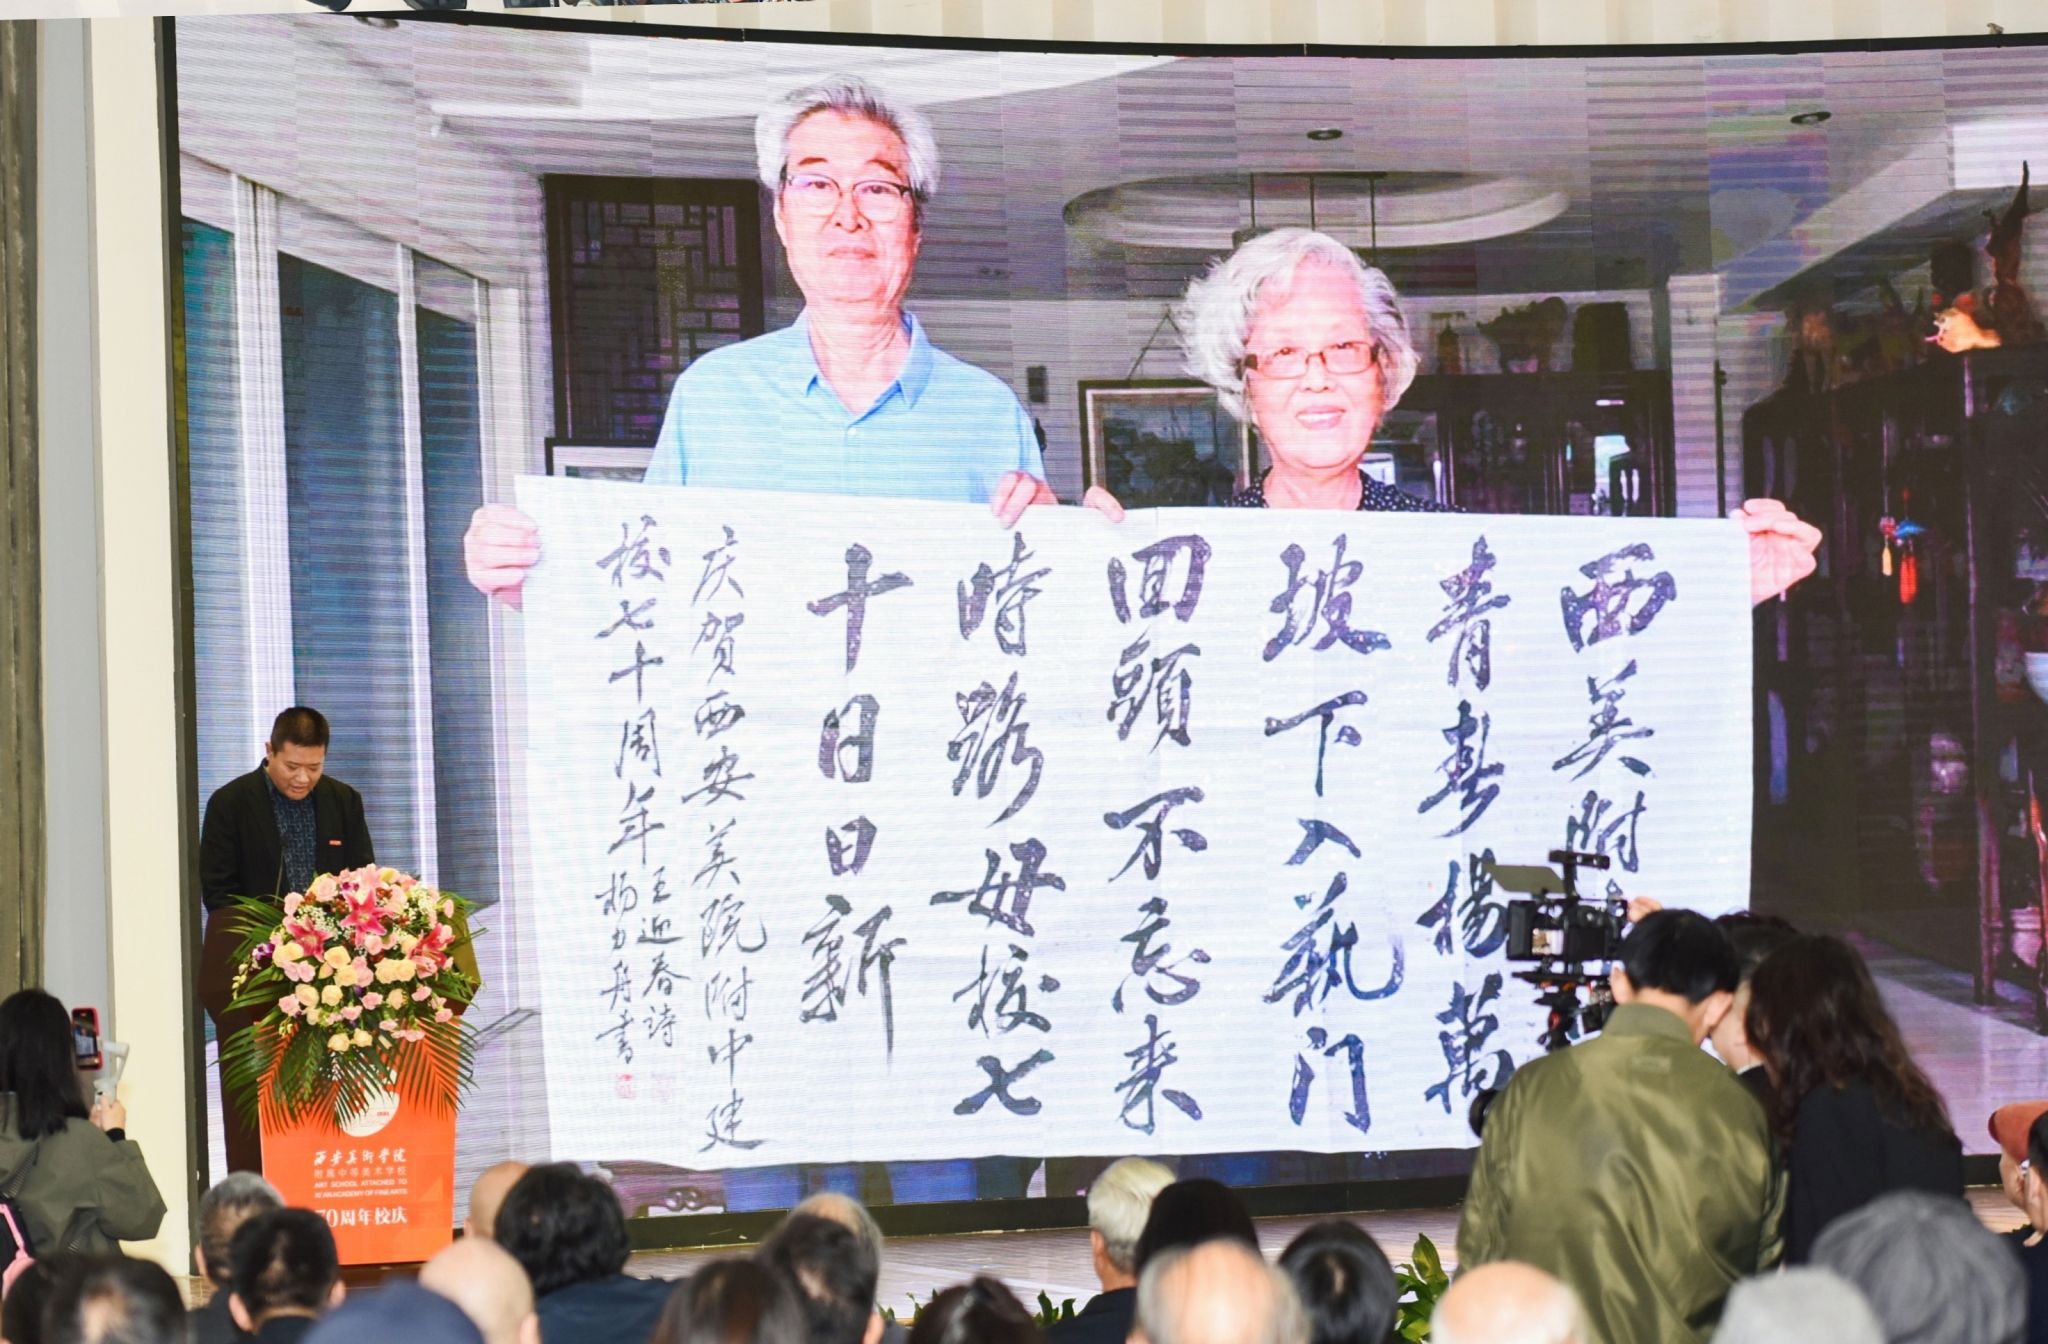 西美附
青春楊萬
坡下入藝门
回頭不忘来
時路母校七
十日日新
庆贺西安美院附中建
校七十周年
王迎春诗
杨力舟書
西安美術学院
附属中等美术学校
ART SCHOOL ATTACHED TO
XI'AN ACADEMY OF FINE ARTS
70周年校庆